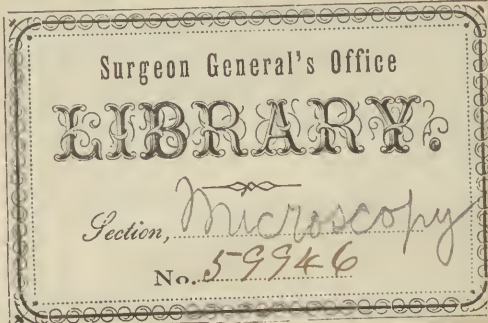 Surgeon General's Office
LIBRARY.
Section, Microscopy
No. 59946